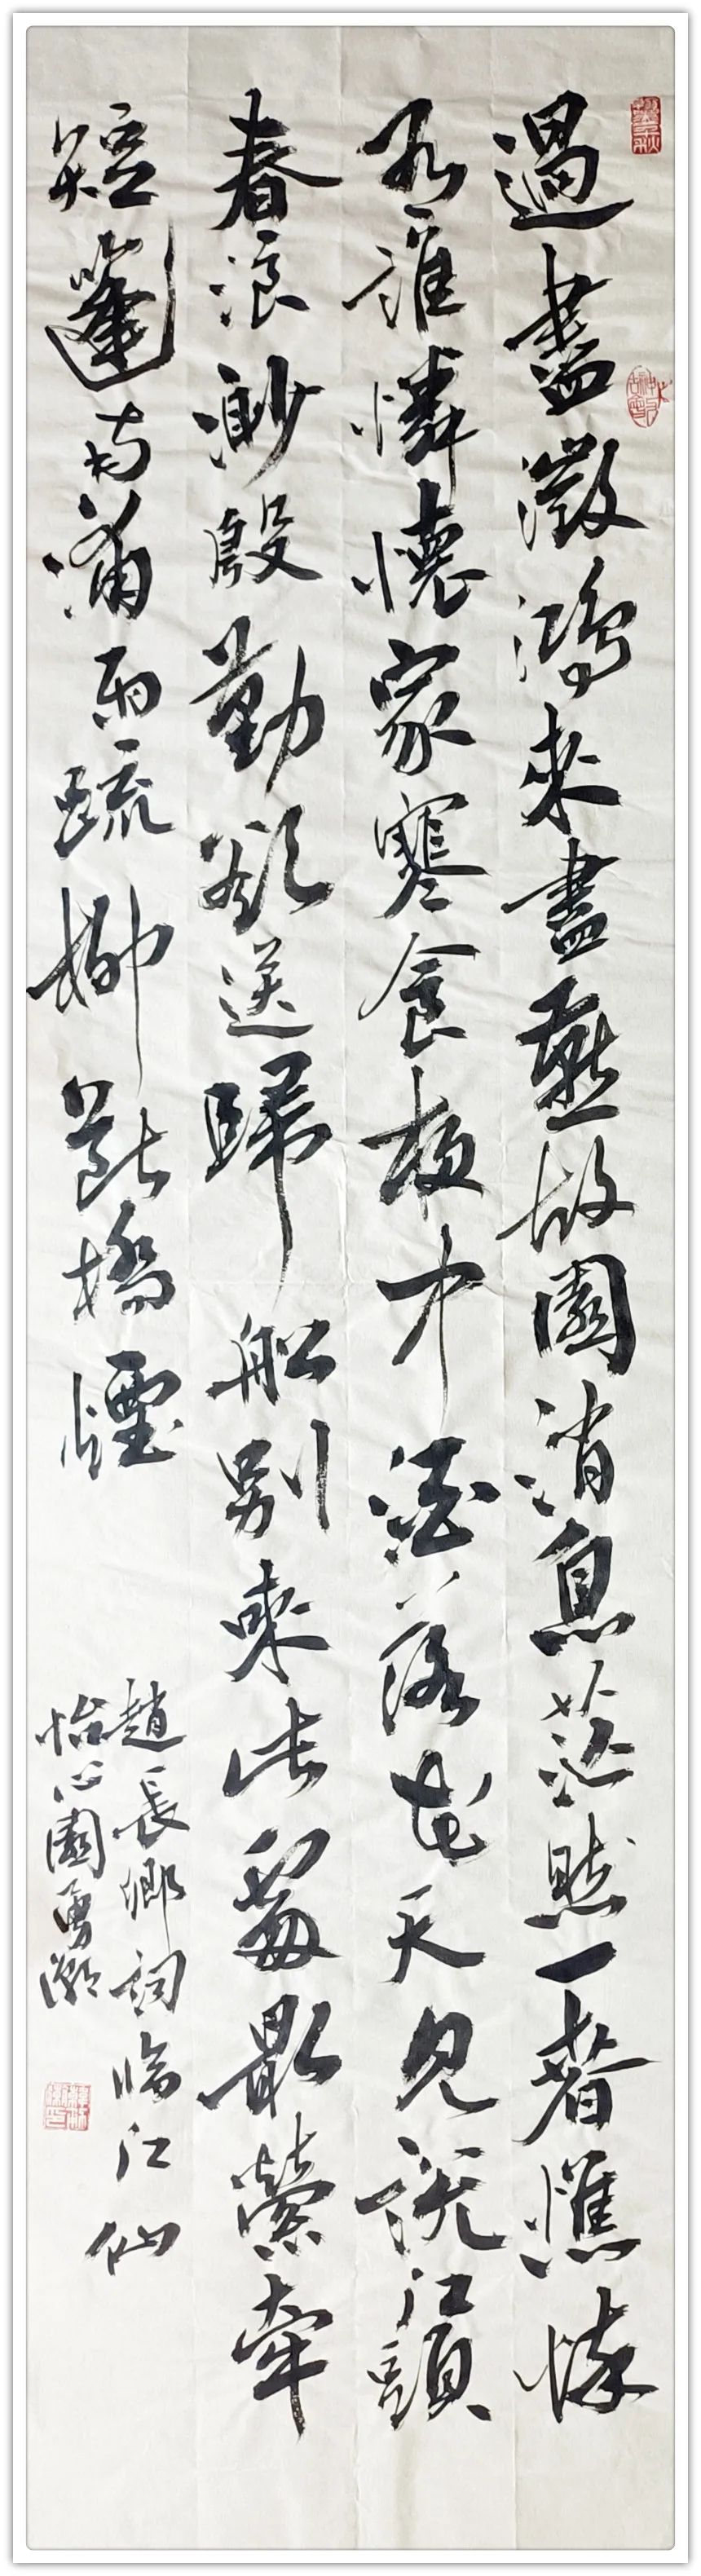 過盡徵鴻來盡燕故園消息茫然一春憔悴
有誰憐懷家寒食夜中酒落花天見說江頭
春浪渺殷勤欲送歸船別來此處最縈牽
短篷南浦雨疏柳斷橋煙
趙長卿詞臨江仙
怡心園勇